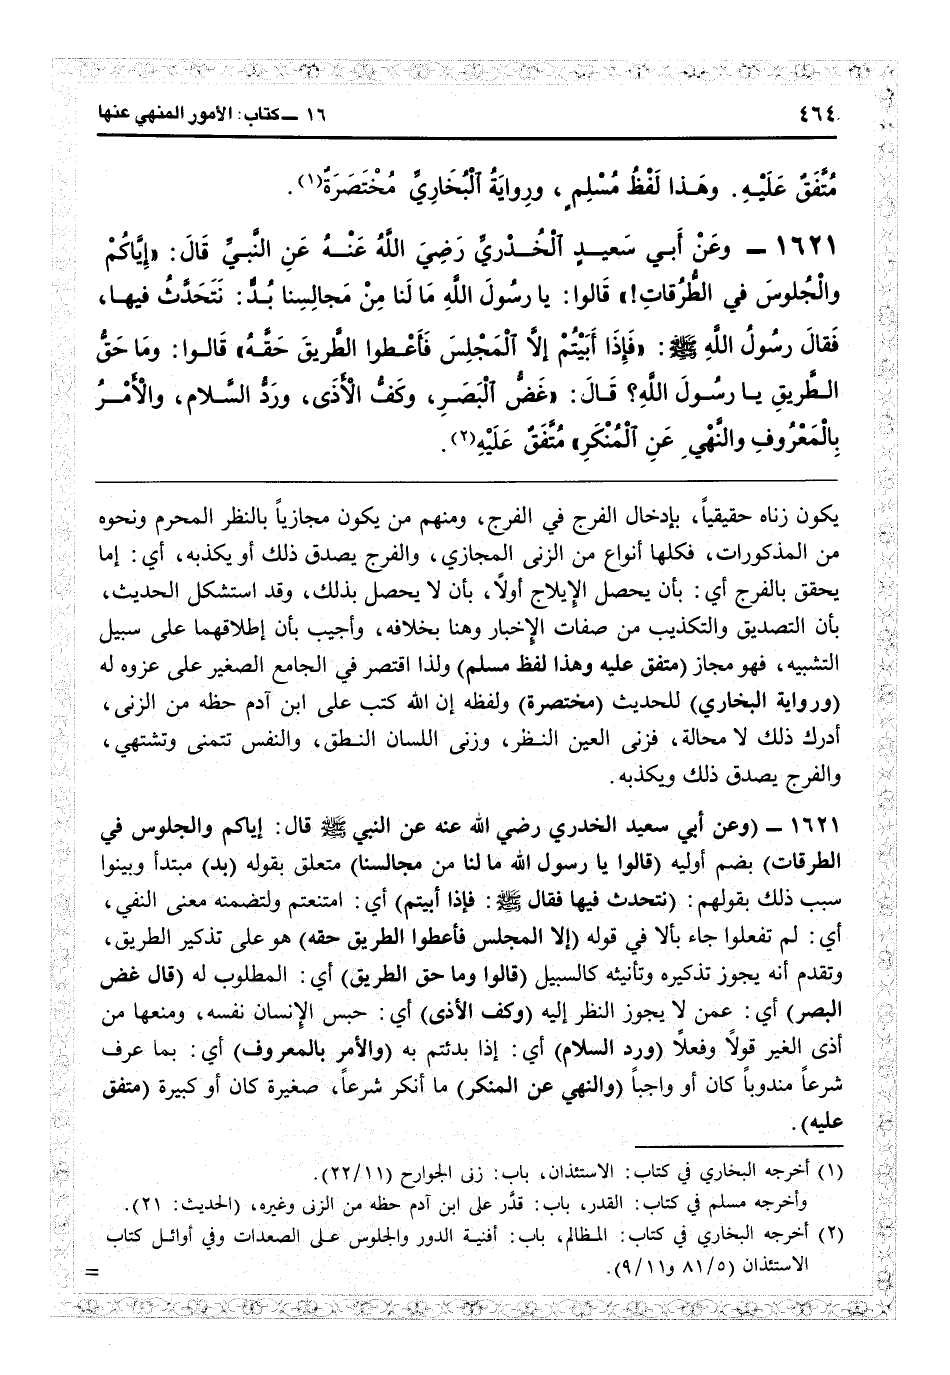 ٤٦٤
١٦ ــ كتاب: الأمور المنهي عنها
مُتَّفَقٌ عَلَيْهِ. وهَـٰذا لَفْظُ مُسْلِمٍ، ورِوايَةُ ٱلْبُخَارِيِّ مُخْتَصَرَةٌ(١).
١٦٢١ ــ وعَنْ أَبي سَعيـدٍ ٱلْخُـدْرِيِّ رَضِيَ اللَّهُ عَنْـهُ عَنِ النَّبيِّ قَالَ: «إِيَّاكُمْ
والْجُلوسَ في الطُّرُقاتِ!» قَالوا: يا رسُولَ اللَّهِ مَا لَنا مِنْ مَجالِسِنا بُدٌّ: نَتَحَدَّثُ فيهـا،
فَقالَ رسُولُ اللَّهِ ﷺ: «فَإِذَا أَبَيْتُمْ إِلَّا ٱلْمَجْلِسَ فَأَعْـطوا الطَّريقَ حَقَّـهُ» قَالـوا: ومَا حَقُّ
الـطَّريقِ يـا رسُـولَ اللَّهِ؟ قَـالَ: «غَضُّ ٱلْبَصَـرِ، وكَفُّ الْأَذَى، ورَدُّ السَّـلام، والْأَمْـرُ
بِالْمَعْرُوفِ والنَّهْيِ عَنِ ٱلْمُنْكَرِ» مُتَّفَقٌ عَلَيْهِ(٢).
يكون زناه حقيقياً، بإدخال الفرج في الفرج، ومنهم من يكون مجازياً بالنظر المحرم ونحوه
من المذكورات، فكلها أنواع من الزنى المجازي، والفرج يصدق ذلك أو يكذبه، أي: إما
يحقق بالفرج أي: بأن يحصل الإِيلاج أولاً، بأن لا يحصل بذلك، وقد استشكل الحديث،
بأن التصديق والتكذيب من صفات الإِخبار وهنا بخلافه، وأجيب بأن إطلاقهما على سبيل
التشبيه، فهو مجاز (متفق عليه وهذا لفظ مسلم) ولذا اقتصر في الجامع الصغير على عزوه له
(ورواية البخاري) للحديث (مختصرة) ولفظه إن الله كتب على ابن آدم حظه من الزنى،
أدرك ذلك لا محالة، فزنى العين النـظر، وزنى اللسان النـطق، والنفس تتمنى وتشتهي،
والفرج يصدق ذلك ويكذبه.
١٦٢١ ــ (وعن أبي سعيد الخدري رضي الله عنه عن النبي ﷺ قال: إياكم والجلوس في
الطرقات) بضم أوليه (قالوا يا رسول الله ما لنا من مجالسنا) متعلق بقوله (بد) مبتدأ وبينوا
سبب ذلك بقولهم: (نتحدث فيها فقال ﷺ: فإذا أبيتم) أي: امتنعتم ولتضمنه معنى النفي،
أي: لم تفعلوا جاء بألا في قوله (إلا المجلس فأعطوا الطريق حقه) هو على تذكير الطريق،
وتقدم أنه يجوز تذكيره وتأنيثه كالسبيل (قالوا وما حق الطريق) أي: المطلوب له (قال غض
البصر) أي: عمن لا يجوز النظر إليه (وكف الأذى) أي: حبس الإِنسان نفسه، ومنعها من
أذى الغير قولاً وفعلاً (ورد السلام) أي: إذا بدئتم به (والأمر بالمعروف) أي: بما عرف
شرعاً مندوباً كان أو واجباً (والنهي عن المنكر) ما أنكر شرعاً، صغيرة كان أو كبيرة (متفق
عليه).
(١) أخرجه البخاري في كتاب: الاستئذان، باب: زنى الجوارح (٢٢/١١).
وأخرجه مسلم في كتاب: القدر، باب: قدَّر على ابن آدم حظه من الزنى وغيره، (الحديث: ٢١).
(٢) أخرجه البخاري في كتاب: المظالم، باب: أفنية الدور والجلوس عـلى الصعدات وفي أوائـل كتاب
الاستئذان (٨١/٥ و٩/١١).
=